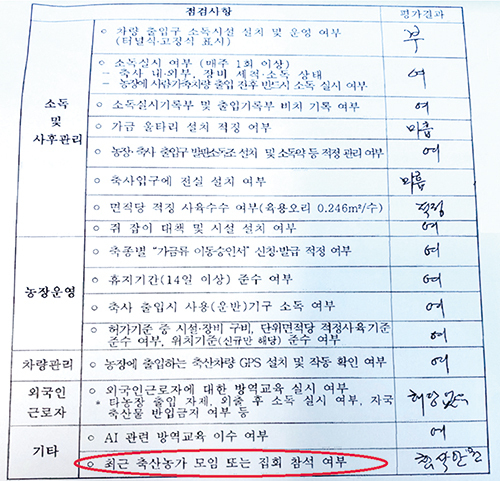 점검사항 평가결과
소독
및
사후관리
○ 차량 출입구 소독시설 설치 및 운영 여부
(터널식·고정식 표시)
부
○ 소독실시 여부 (매주 1회 이상)
- 축사 내·외부, 장비 세척·소독 상태
- 농장에 사람·가축차량 출입 전·후 반드시 소독 실시 여부
여
○ 소독실시기록부 및 출입기록부 비치 기록 여부 여
○ 가금 울타리 설치 적정 여부 미흡
○ 농장·축사 출입구 발판소독조 설치 및 소독약 등 적정 관리 여부 여
○ 축사입구에 전실 설치 여부 미흡
○ 면적당 적정 사육수수 여부(육용오리 0.246m²/수) 적정
○ 쥐 잡이 대책 및 시설 설치 여부 여
농장운영
○ 축종별 "가금류 이동승인서" 신청·발급 적정 여부 여
○ 휴지기간(14일 이상) 준수 여부 여
○ 축사 출입시 사용(운반)기구 소독 여부 여
○ 허가기준 중 시설·장비 구비, 단위면적당 적정사육기준
준수 여부, 위치기준(신규만 해당) 준수 여부
여
차량관리
○ 농장에 출입하는 축산차량 GPS 설치 및 작동 확인 여부 여
외국인
근로자
○ 외국인근로자에 대한 방역교육 실시 여부
* 타농장 출입 자제, 외출 후 소독 실시 여부, 자국
축산물 반입금지 여부 등
해당
기타
○ AI 관련 방역교육 이수 여부 여
○ 최근 축산농가 모임 또는 집회 참석 여부